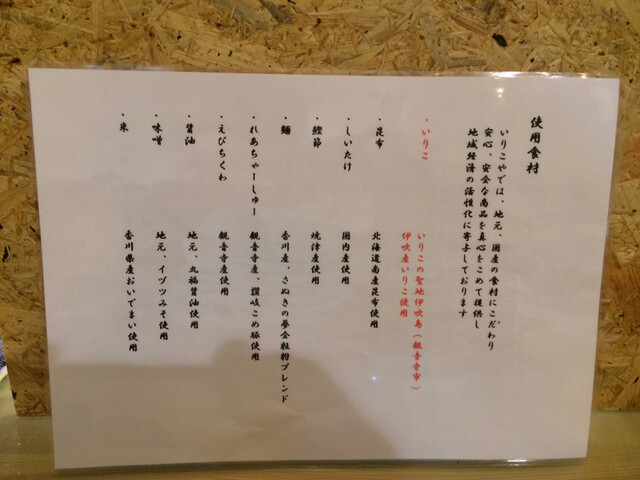 使用食材
いりこやでは、地元、国産の食材にこだわり
安心、安全な商品を真心をこめて提供し
地域経済の活性化に寄与しております
・いりこ　いりこの聖地伊吹島(観音寺市)
伊吹産いりこ使用
・昆布　北海道南産昆布使用
・しいたけ　国内産使用
・鰹節　焼津産使用
・麺　香川産、さぬきの夢全粒粉ブレンド
・れあちゃーしゅー　観音寺産、讃岐こめ豚使用
・えびちくわ　観音寺産使用
・醤油　地元、丸福醤油使用
・味噌　地元、イヅツみそ使用
・米　香川県産おいでまい使用